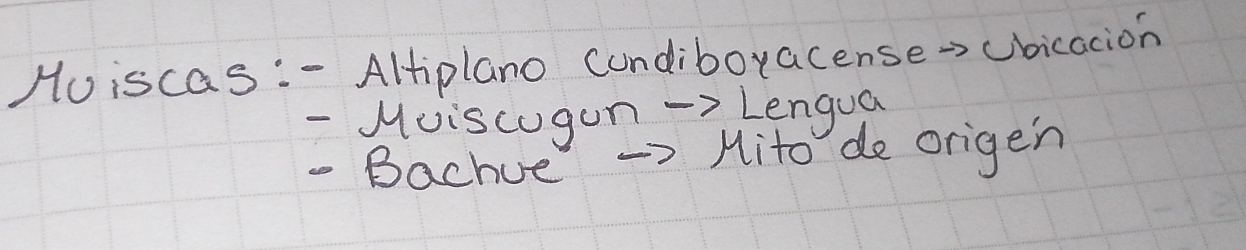 Muiscas: - Altiplano Cundiboyacense → Ubicación
- Muiscugun → Lengua
- Bachue → Mito de origen